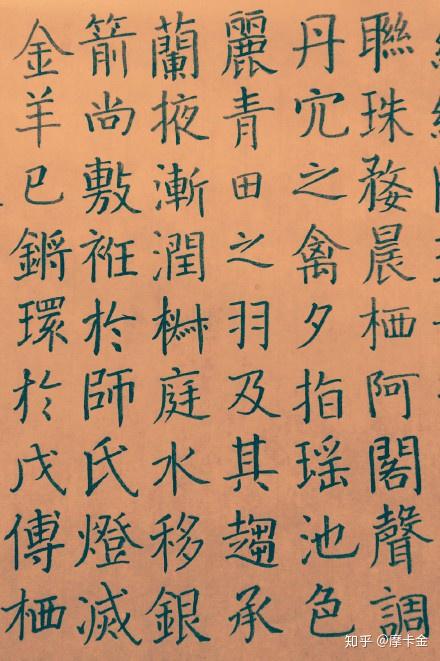 聯珠婺晨栖阿閣聲調
丹穴之禽夕指瑶池色
麗青田之羽及其趨承
蘭掖漸潤椒庭水移銀
箭尚敷衽於師氏燈滅
金羊已鏘環於戊傅栖
知乎 @摩卡金